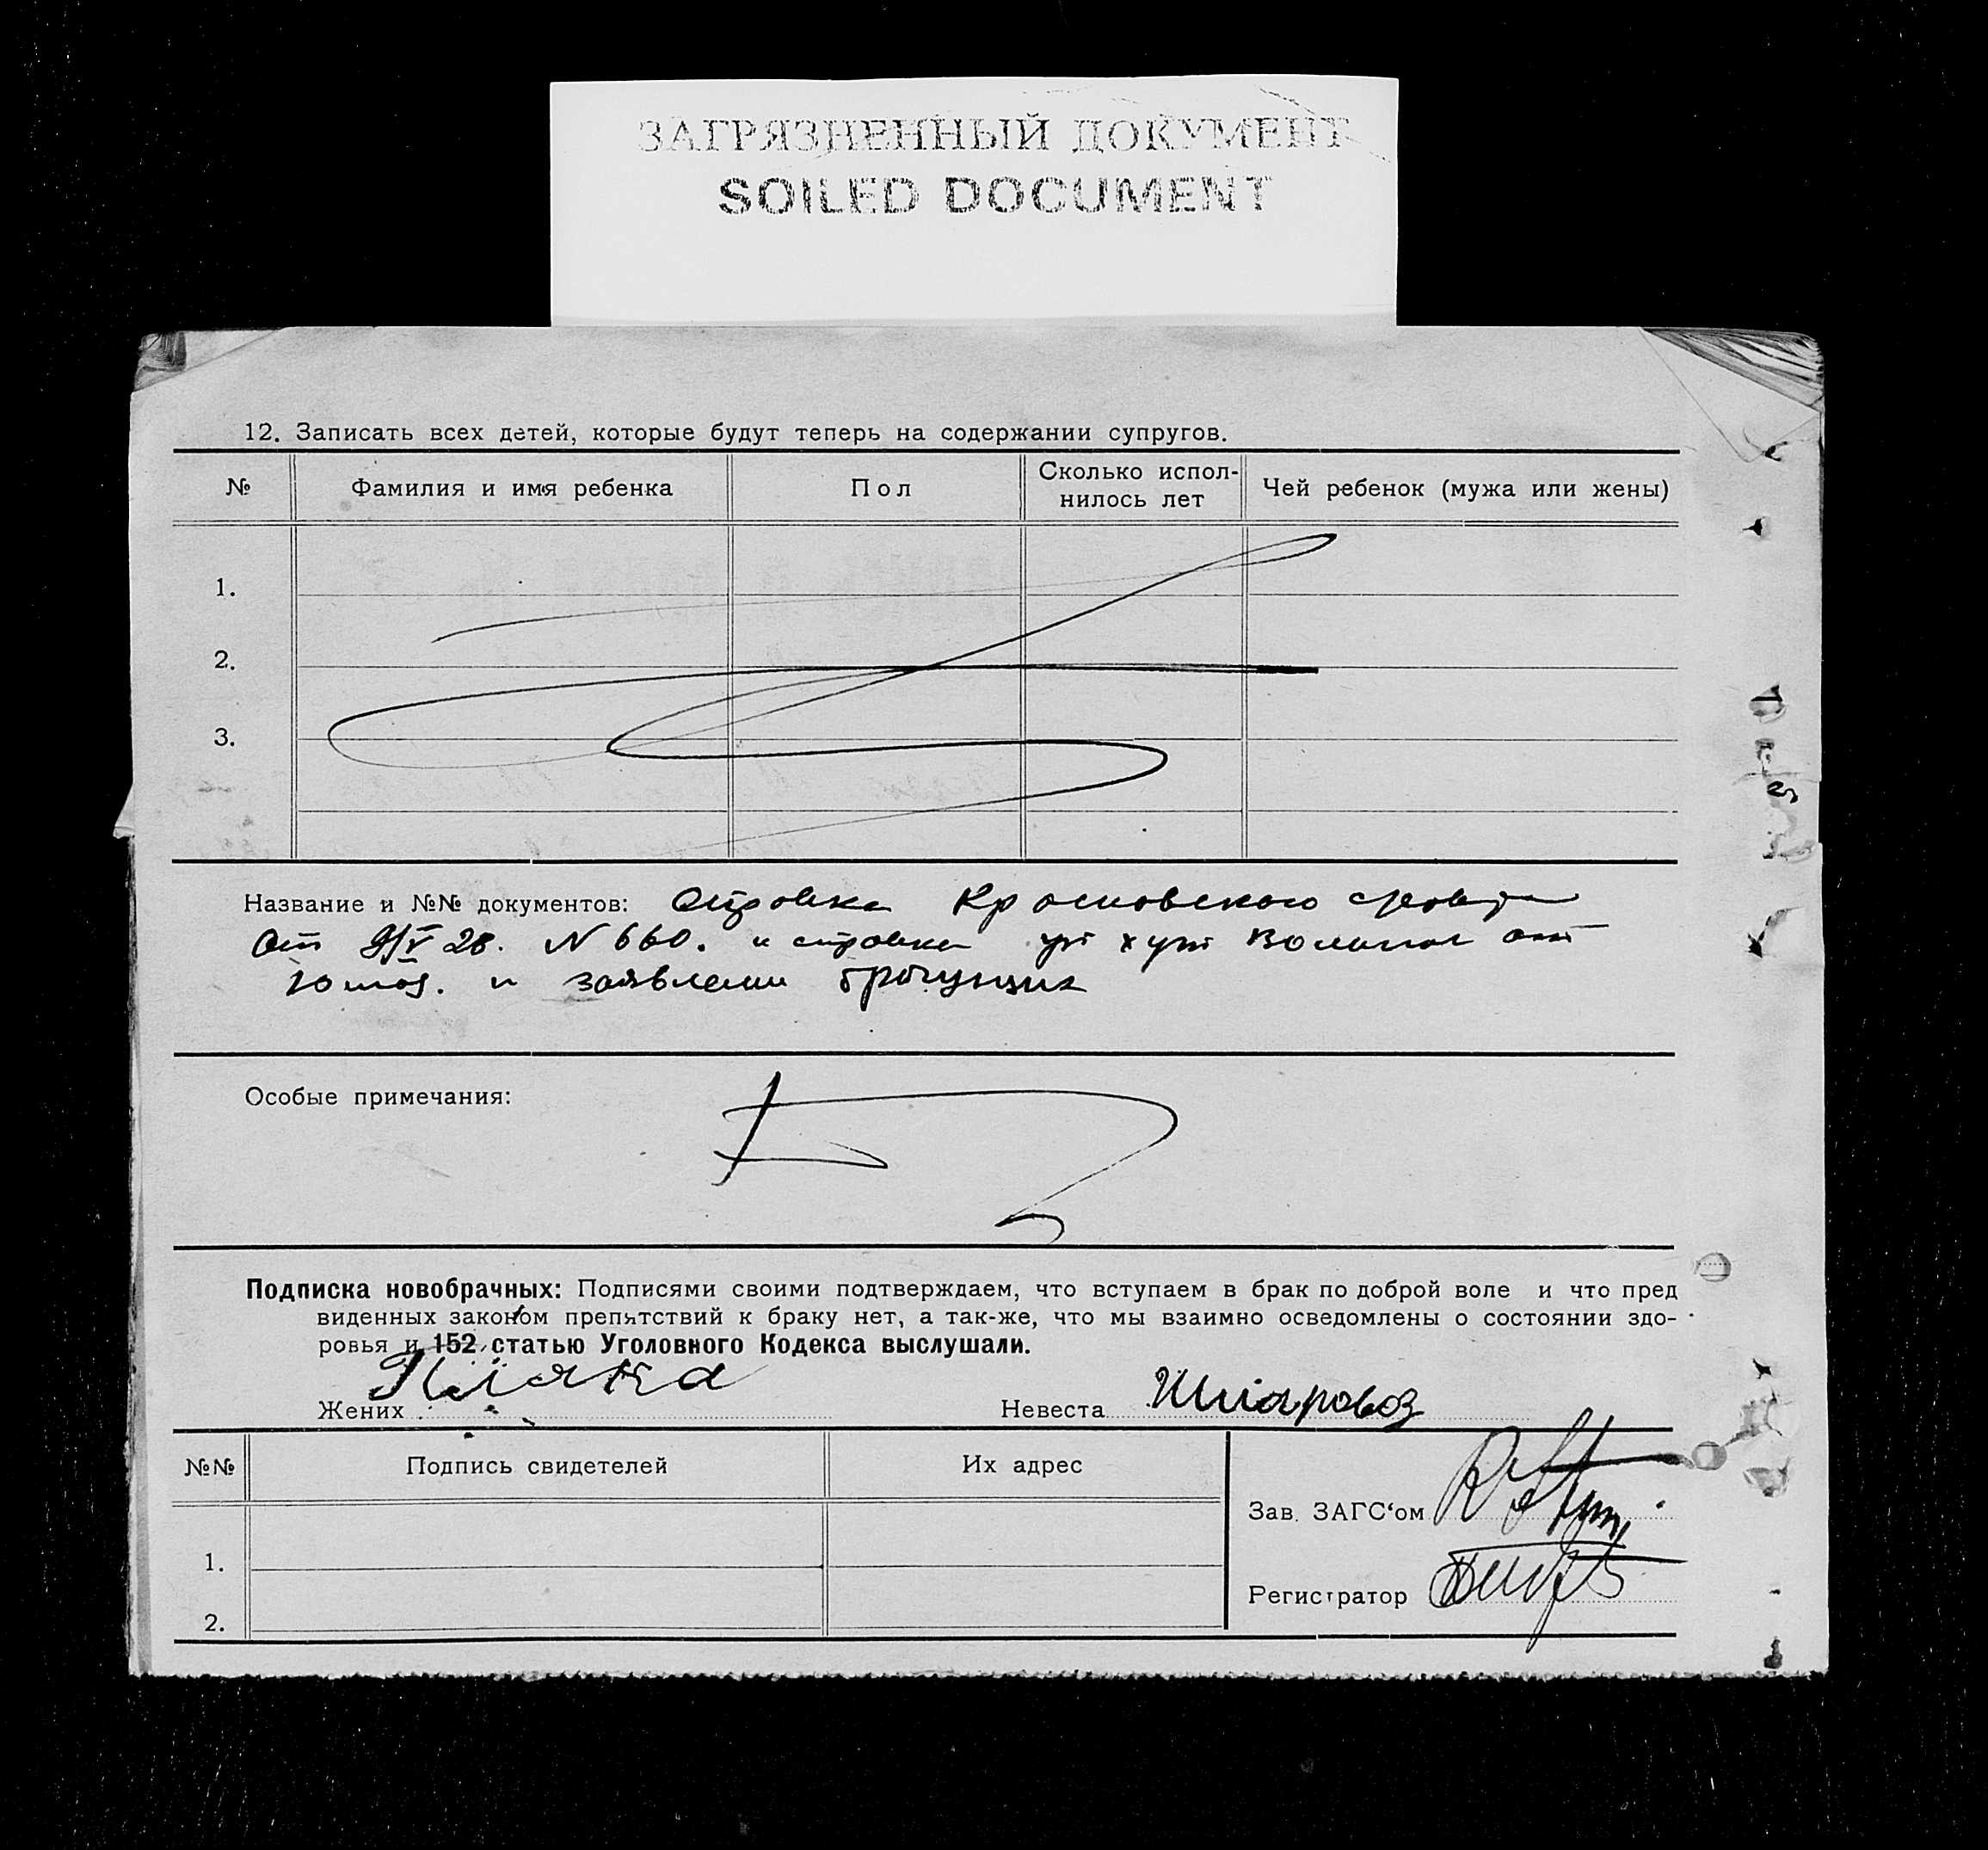 ЗАГРЯЗНЕННЫЙ ДОКУМЕНТ
SOILED DOCUMENT
12. Записать всех детей, которые будут теперь на содержании супругов.
№ Фамилия и имя ребенка Пол Сколько испол-нилось лет Чей ребенок (мужа или жены)
1.
2.
3.
Название и №№ документов: Справка
От 9/V 28. N 660. и справки хут
и заявлении брачущих
Особые примечания:
Подписка новобрачных: Подписями своими подтверждаем, что вступаем в брак по доброй воле и что пред
виденных законом препятствий к браку нет, а так-же, что мы взаимно осведомлены о состоянии здо-
ровья и 152 статью Уголовного Кодекса выслушали.
Жених Невеста
№№ Подпись свидетелей Их адрес
Зав. ЗАГС‘ом
1.
Регистратор
2.